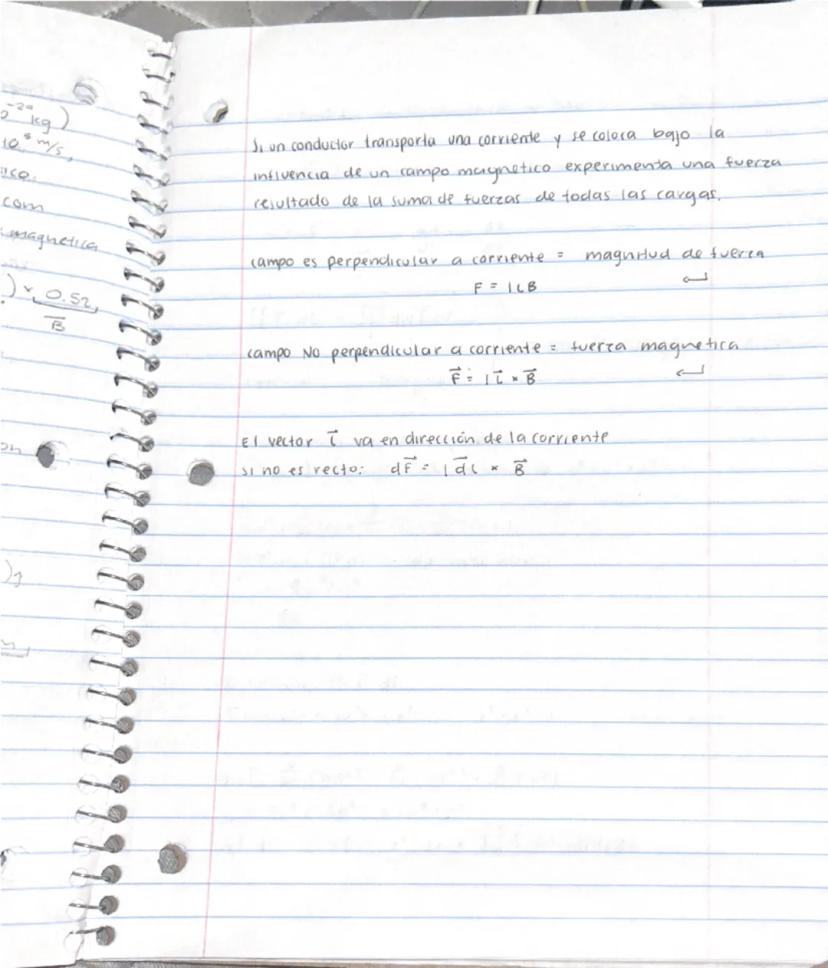 0⁻²⁹ kg)
10⁵ m/s,
com
magnetica
) × 0.52
B⃗
Si un conductor transporta una corriente y se coloca bajo la
influencia de un campo magnetico experimenta una fuerza
resultado de la suma de fuerzas de todas las cargas.
campo es perpendicular a corriente = magnitud de fuerza
F = ILB
campo No perpendicular a corriente = fuerza magnetica
F⃗ = I L⃗ × B⃗
El vector L⃗ va en dirección de la corriente
si no es recto: dF⃗ = I d⃗L × B⃗